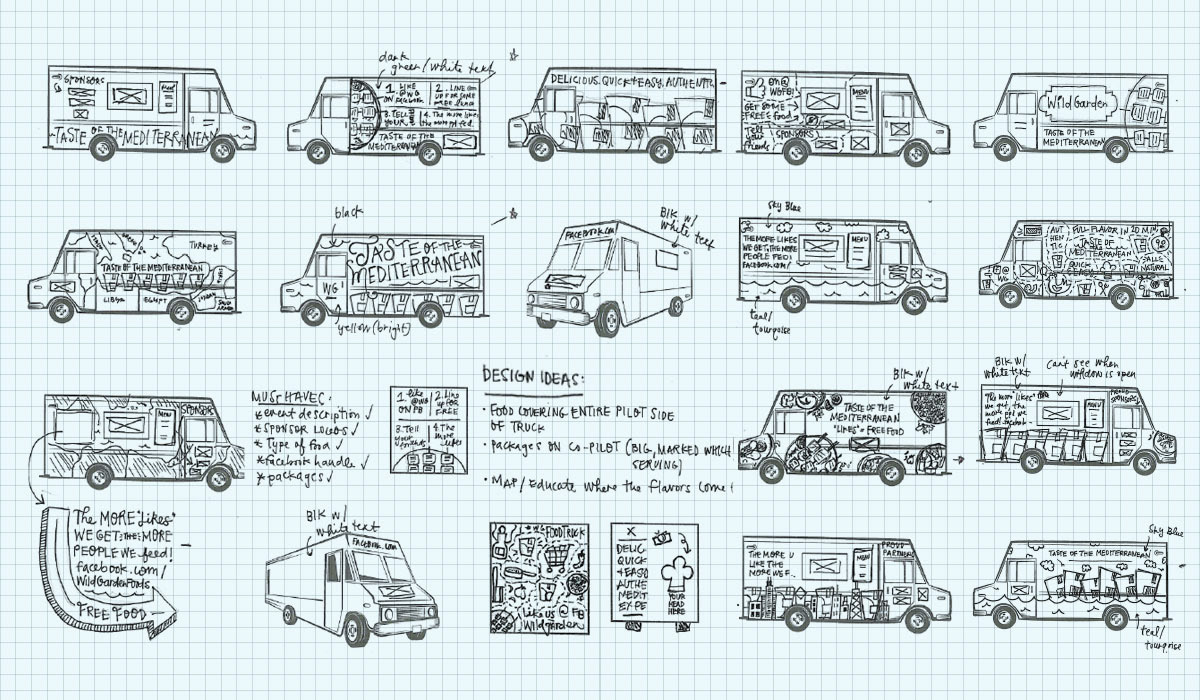 SPONSORS
TASTE OF THE MEDITERRANEAN
dark
green/white text
1. LIKE
@WG
ON FACEBOOK
2. LINE
UP FOR SOME
3. TELL
YOUR
4. The more likes
the more we feed.
TASTE OF THE
MEDITERRANEAN
DELICIOUS. QUICK+EASY. AUTHENTIC
GET SOME
FREE food
Tell
your
friends
SPONSORS
MENU
Wild Garden
TASTE OF THE
MEDITERRANEAN
TURKEY
TASTE OF THE MEDITERRANEAN
LIBYA
EGYPT
black
TASTE OF THE
MEDITERRANEAN
WG
yellow (bright)
FACEBOOK.COM
Blk w/
white text
Sky Blue
THE MORE LIKES
WE GET, THE MORE
PEOPLE FED!
FACEBOOK.COM/
MENU
teal/
tourqoise
AUT
HEN
TIC
FULL FLAVOR IN 20 MIN
TASTE OF
MEDITERRANEAN
QUICK
NATURAL
MENU
SPONSORS
MUST HAVES:
*event description ✓
*SPONSOR LOGOS ✓
*Type of food ✓
*facebook handle ✓
*packages ✓
1. like
@WG
ON FB
2. Line
up for
FREE
3. Tell
your
4. The
more
likes
DESIGN IDEAS:
• FOOD COVERING ENTIRE PILOT SIDE
OF TRUCK
• Packages ON CO-PILOT (BIG, MARKED WHICH
SERVING)
• MAP/Educate where the flavors come
Blk w/
white text
TASTE OF THE
MEDITERRANEAN
"LIKES" = FREE FOOD
Blk w/
white text
can't see when
window is open
"The more likes"
we get, the
more ppl we
feed!
MENU
PROUD
SPONSORS
The MORE "likes"
WE GET THE MORE
PEOPLE WE feed!
facebook.com/
WildGardenFoods
FREE FOOD
Blk w/
white text
FACEBOOK.COM
FOOD TRUCK
Like us @ FB
Wildgarden
X
DELIC
QUICK
+EASY
AUTHE
MEDIT
YOUR
HEAD
HERE
THE MORE U
LIKE THE
MORE WE F..
MENU
PROUD
PARTNERS
Sky Blue
TASTE OF THE MEDITERRANEAN
teal/
tourqoise